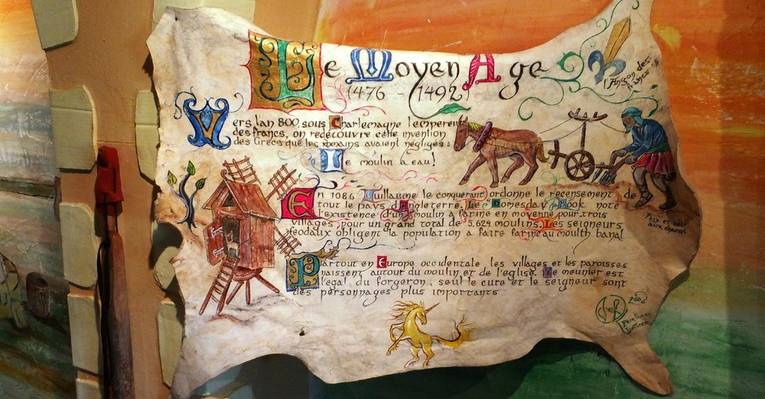 Le Moyen Age
(476 - (1492)
Vers l'an 800 sous Charlemagne l'empereur
des francs, on redécouvre cette invention
des Grecs que les romains avaient négligés:
le moulin à eau!
En 1086 Guillaume le conquérant ordonne le recensement de
tout le pays d'Angleterre. Le Domesday Book note
l'existence d'un moulin à farine en moyenne pour trois
villages pour un grand total de 5,624 moulins. Les seigneurs
féodaux obligent la population à faire farine au moulin banal
Partout en Europe occidentale, les villages et les paroisses
naissent autour du moulin et de l'église. Le meunier est
l'égal du forgeron, seul le curé et le seigneur sont
des personnages plus importants